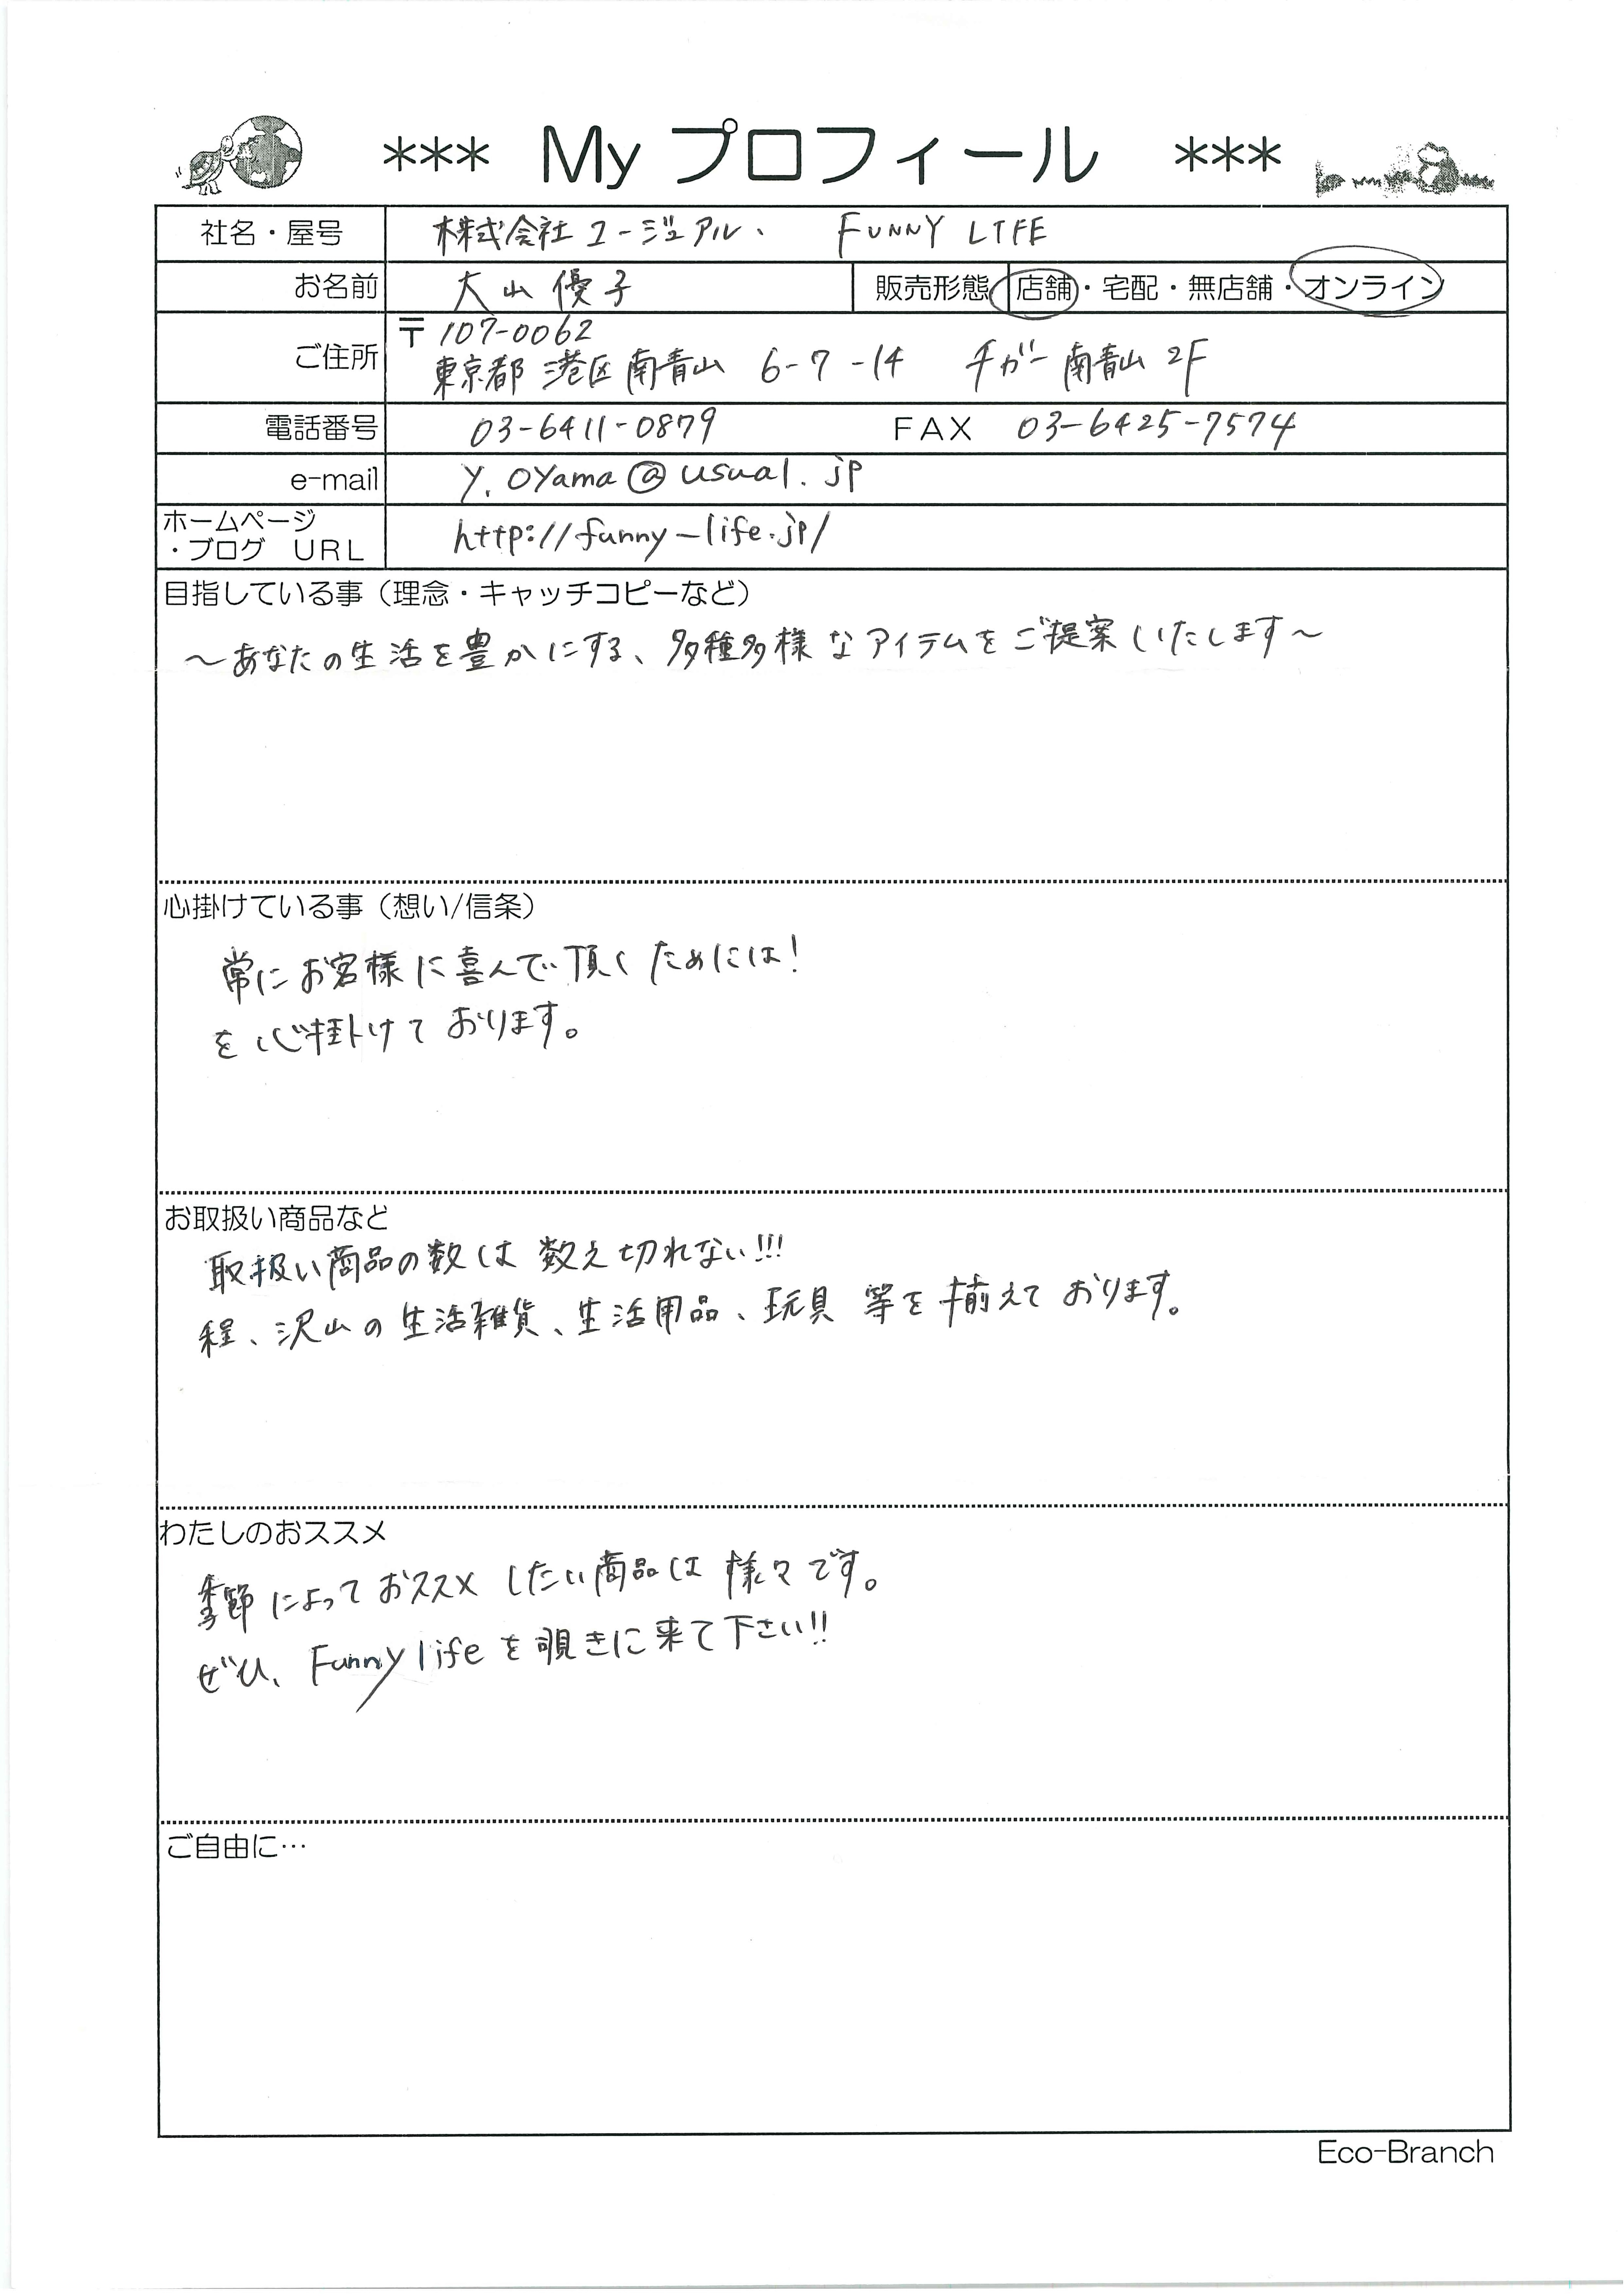 *** My プロフィール ***
社名・屋号 株式会社ユージュアル、 FUNNY LIFE
お名前 大山優子 販売形態 店舗・宅配・無店舗・オンライン
〒107-0062
ご住所 東京都港区南青山 6-7-14 チガー南青山 2F
電話番号 03-6411-0879 FAX 03-6425-7574
e-mail y.oyama@usual.jp
ホームページ
・ブログ URL http://funny-life.jp/
目指している事（理念・キャッチコピーなど）
～あなたの生活を豊かにする、多種多様なアイテムをご提案しいたします～
心掛けている事（想い/信条）
常にお客様に喜んで頂くためには！
を心掛けております。
お取扱い商品など
取扱い商品の数は数え切れない!!!
程、沢山の生活雑貨、生活用品、玩具等を揃えております。
わたしのおススメ
季節によっておススメしたい商品は様々です。
ぜひ、Funny lifeを覗きに来て下さい!!
ご自由に…
Eco-Branch